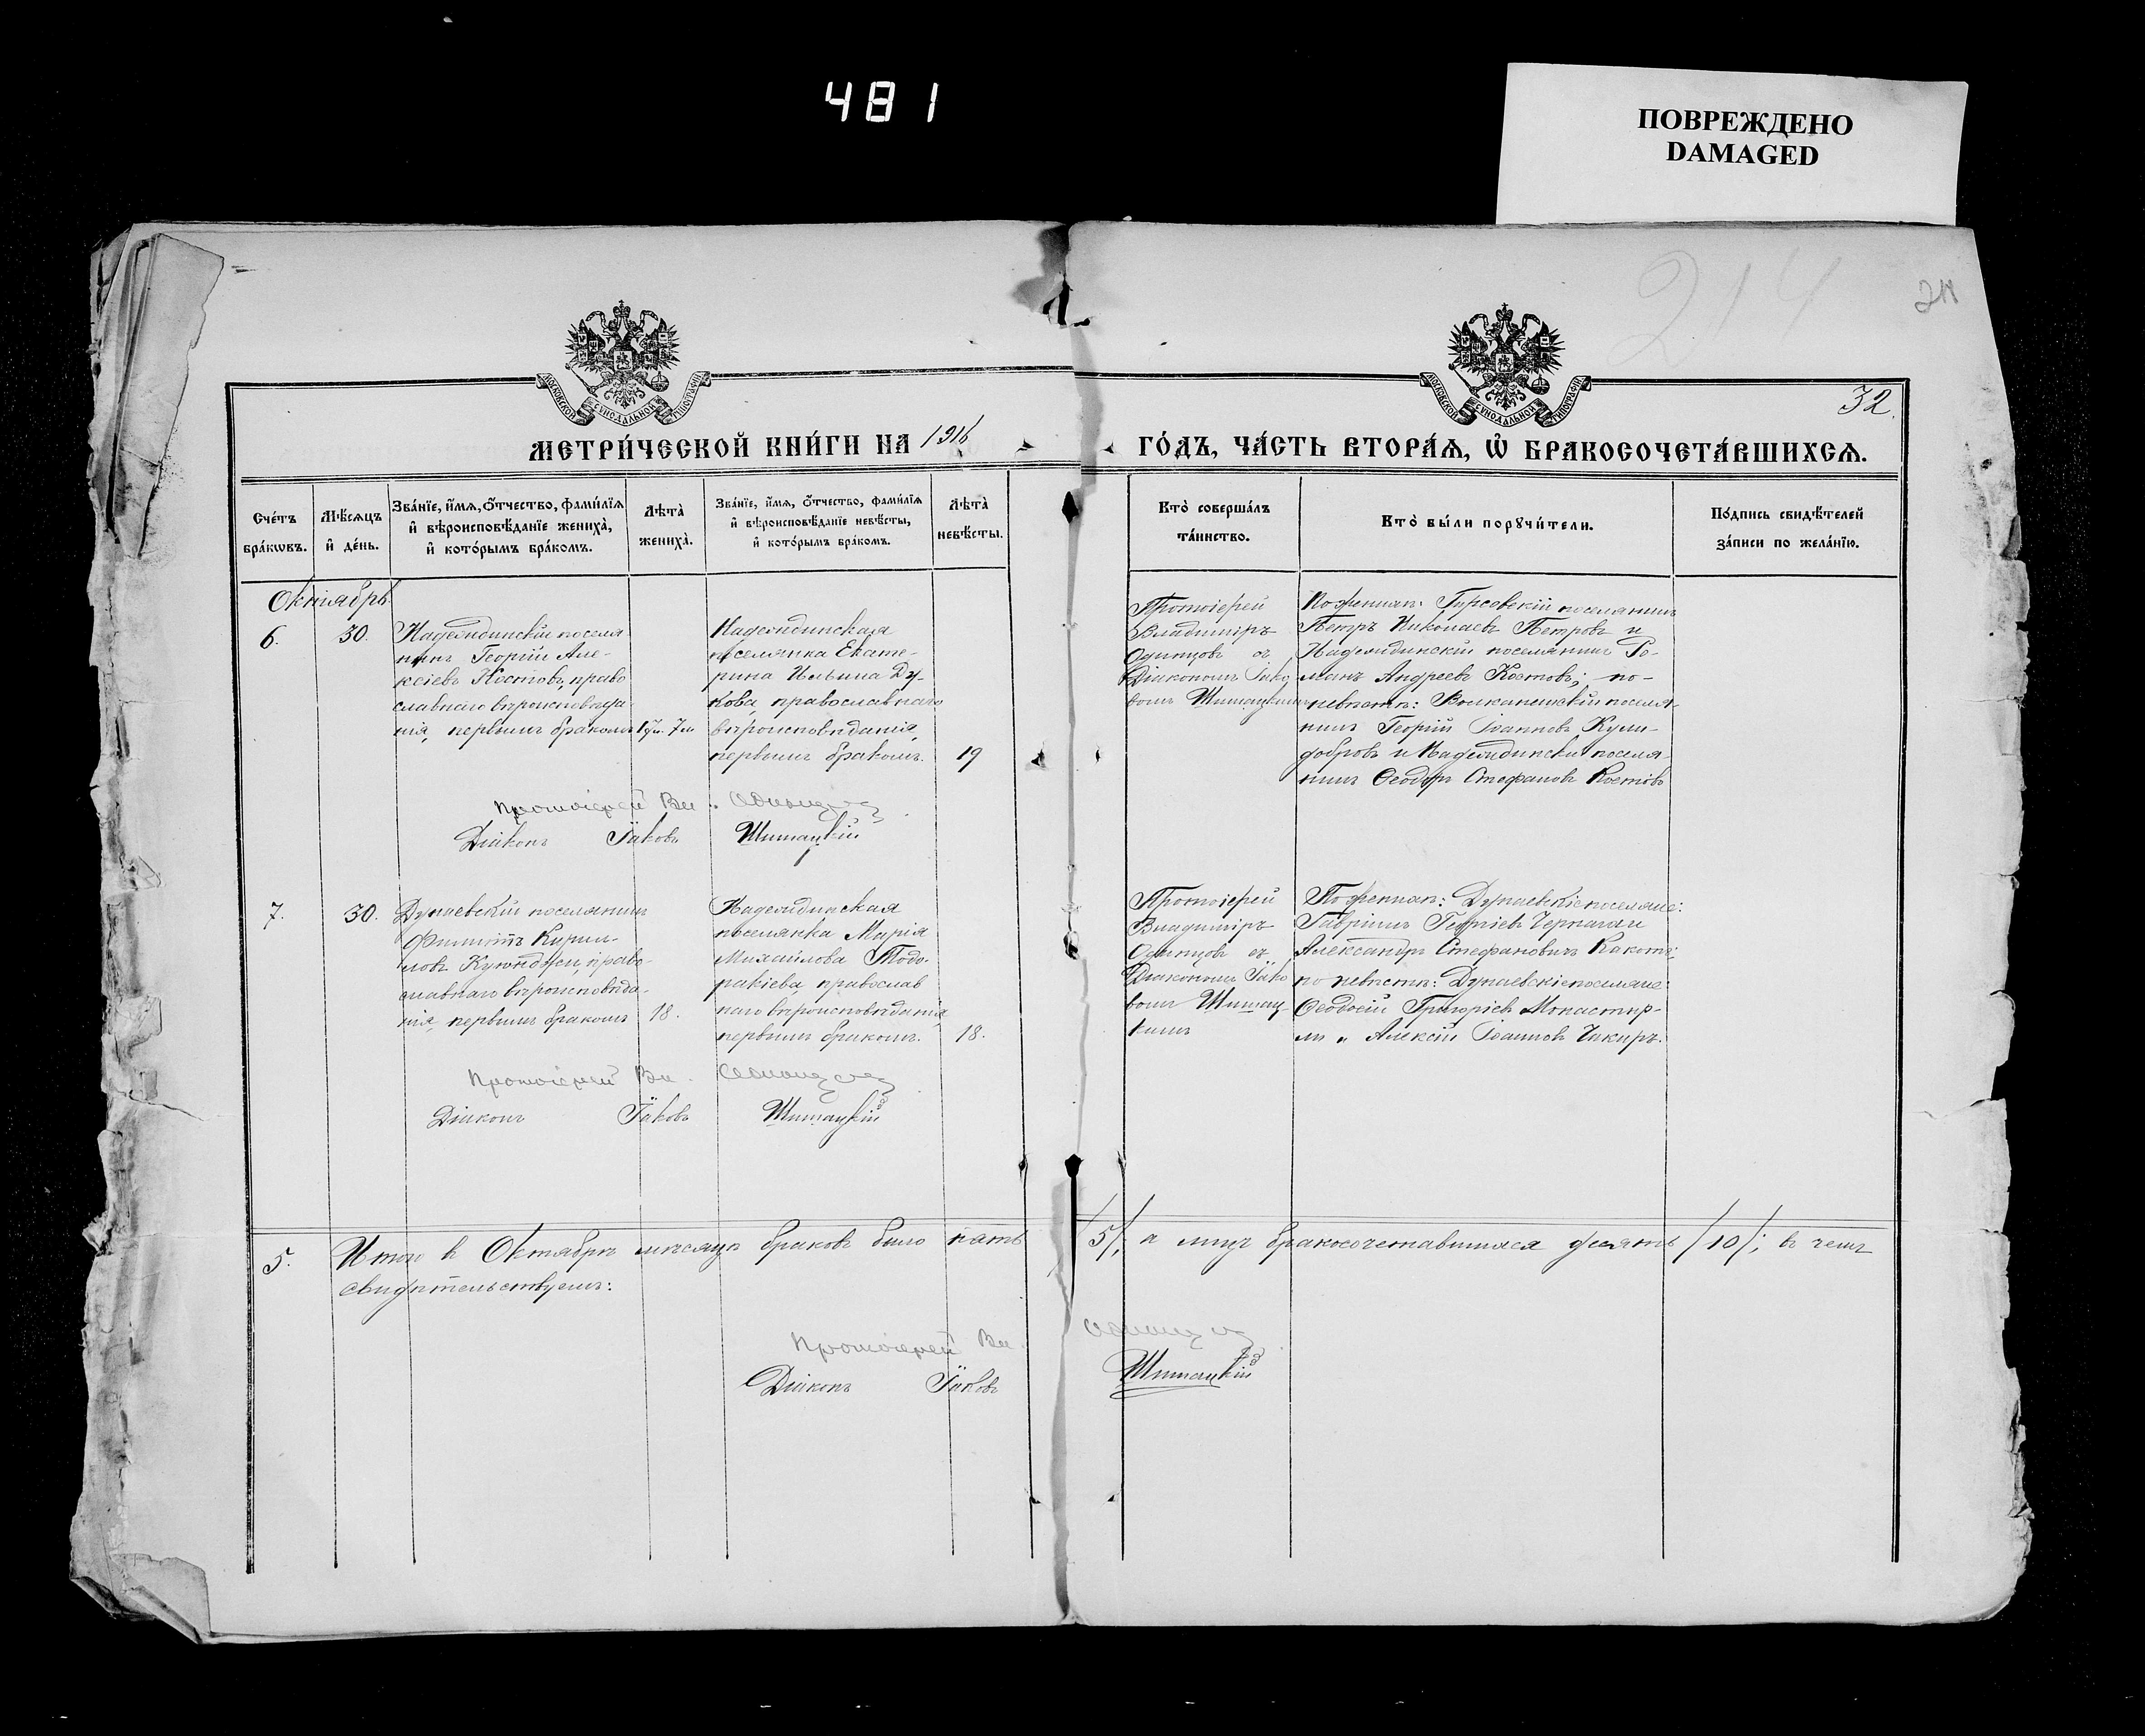 481
ПОВРЕЖДЕНО
DAMAGED
214
214
32
МОСКОВСКОЙ СѴНОДАЛЬНОЙ ТИПОГРАФІИ
МОСКОВСКОЙ СѴНОДАЛЬНОЙ ТИПОГРАФІИ
МЕТРИ́ЧЕСКОЙ КНИ́ГИ НА 1916
ГО́ДЪ, ЧА́СТЬ ВТОРА́Ѧ, Ѡ҆ БРАКОСОЧЕТА́ВШИХСѦ.
Сче́тъ
бра́кѡвъ.
Мѣ́сѧцъ
и҆ де́нь.
Зва́нїе, и҆́мѧ, Ѻ҆́тчество, фами́лїѧ
и҆ вѣроисповѣ́данїе жениха̀,
и҆ кото́рымъ бра́комъ.
Лѣ́та
жениха̀.
Зва́нїе, и҆́мѧ, Ѻ҆́тчество, фами́лїѧ
и҆ вѣроисповѣ́данїе невѣ́сты,
и҆ кото́рымъ бра́комъ.
Лѣ́та
невѣ́сты.
Кто̀ соверша́лъ
та́инство.
Кто̀ бы́ли порꙋчи́тели.
По́дпись свидѣ́телей
за́писи по жела́нїю.
Октябрь
6.
30.
Надеждинскій поселя
нинъ Георгій Але-
ксіевъ Костовъ, право
славнаго вѣроисповѣда
нія, первымъ бракомъ
17л. 7м
Надеждинская
поселянка Екате-
рина Ильина Ду-
кова, православнаго
вѣроисповѣданія,
первымъ бракомъ.
19
Протоіерей
Владиміръ
Одинцовъ съ
Діакономъ Іако
вомъ Шишацкимъ
По женихѣ: Гурсовскій поселянинъ
Петръ Николаевъ Петровъ и
Надеждинскій поселянинъ Ро-
манъ Андреевъ Костовъ; по-
невѣстѣ: Волканешскій поселя-
нинъ Георгій Іоанновъ Кули-
добровъ и Надеждинскій поселя-
нинъ Ѳеодоръ Стефановъ Костовъ
Протоіерей Вл. Одинцовъ
Діаконъ Іаковъ Шишацкій
7.
30.
Дунаевскій поселянинъ
Филиппъ Кирил-
ловъ Куюнджи, право-
славнаго вѣроисповѣда-
нія, первымъ бракомъ
18.
Надеждинская
поселянка Марія
Михаилова Тодо-
ракіева православ
наго вѣроисповѣданія,
первымъ бракомъ.
18.
Протоіерей
Владиміръ
Одинцовъ съ
Діакономъ Іако
вомъ Шишац-
кимъ
По женихѣ: Дунаевскіе поселяне:
Гавріилъ Георгіевъ Чернагаи
Александръ Стефановичъ
по невѣстѣ: Дунаевскіе поселяне:
Ѳеодосій Григоріевъ Монастыр-
лы и Алексій Іоанновъ Чикиръ.
Протоіерей Вл. Одинцовъ
Діаконъ Іаковъ Шишацкій
5.
Итого въ Октябрѣ мѣсяцѣ браковъ было пять /5/, а лицъ бракосочетавшихся десять /10/; въ чемъ
свидѣтельствуемъ:
Протоіерей Вл. Одинцовъ
Діаконъ Іаковъ Шишацкій